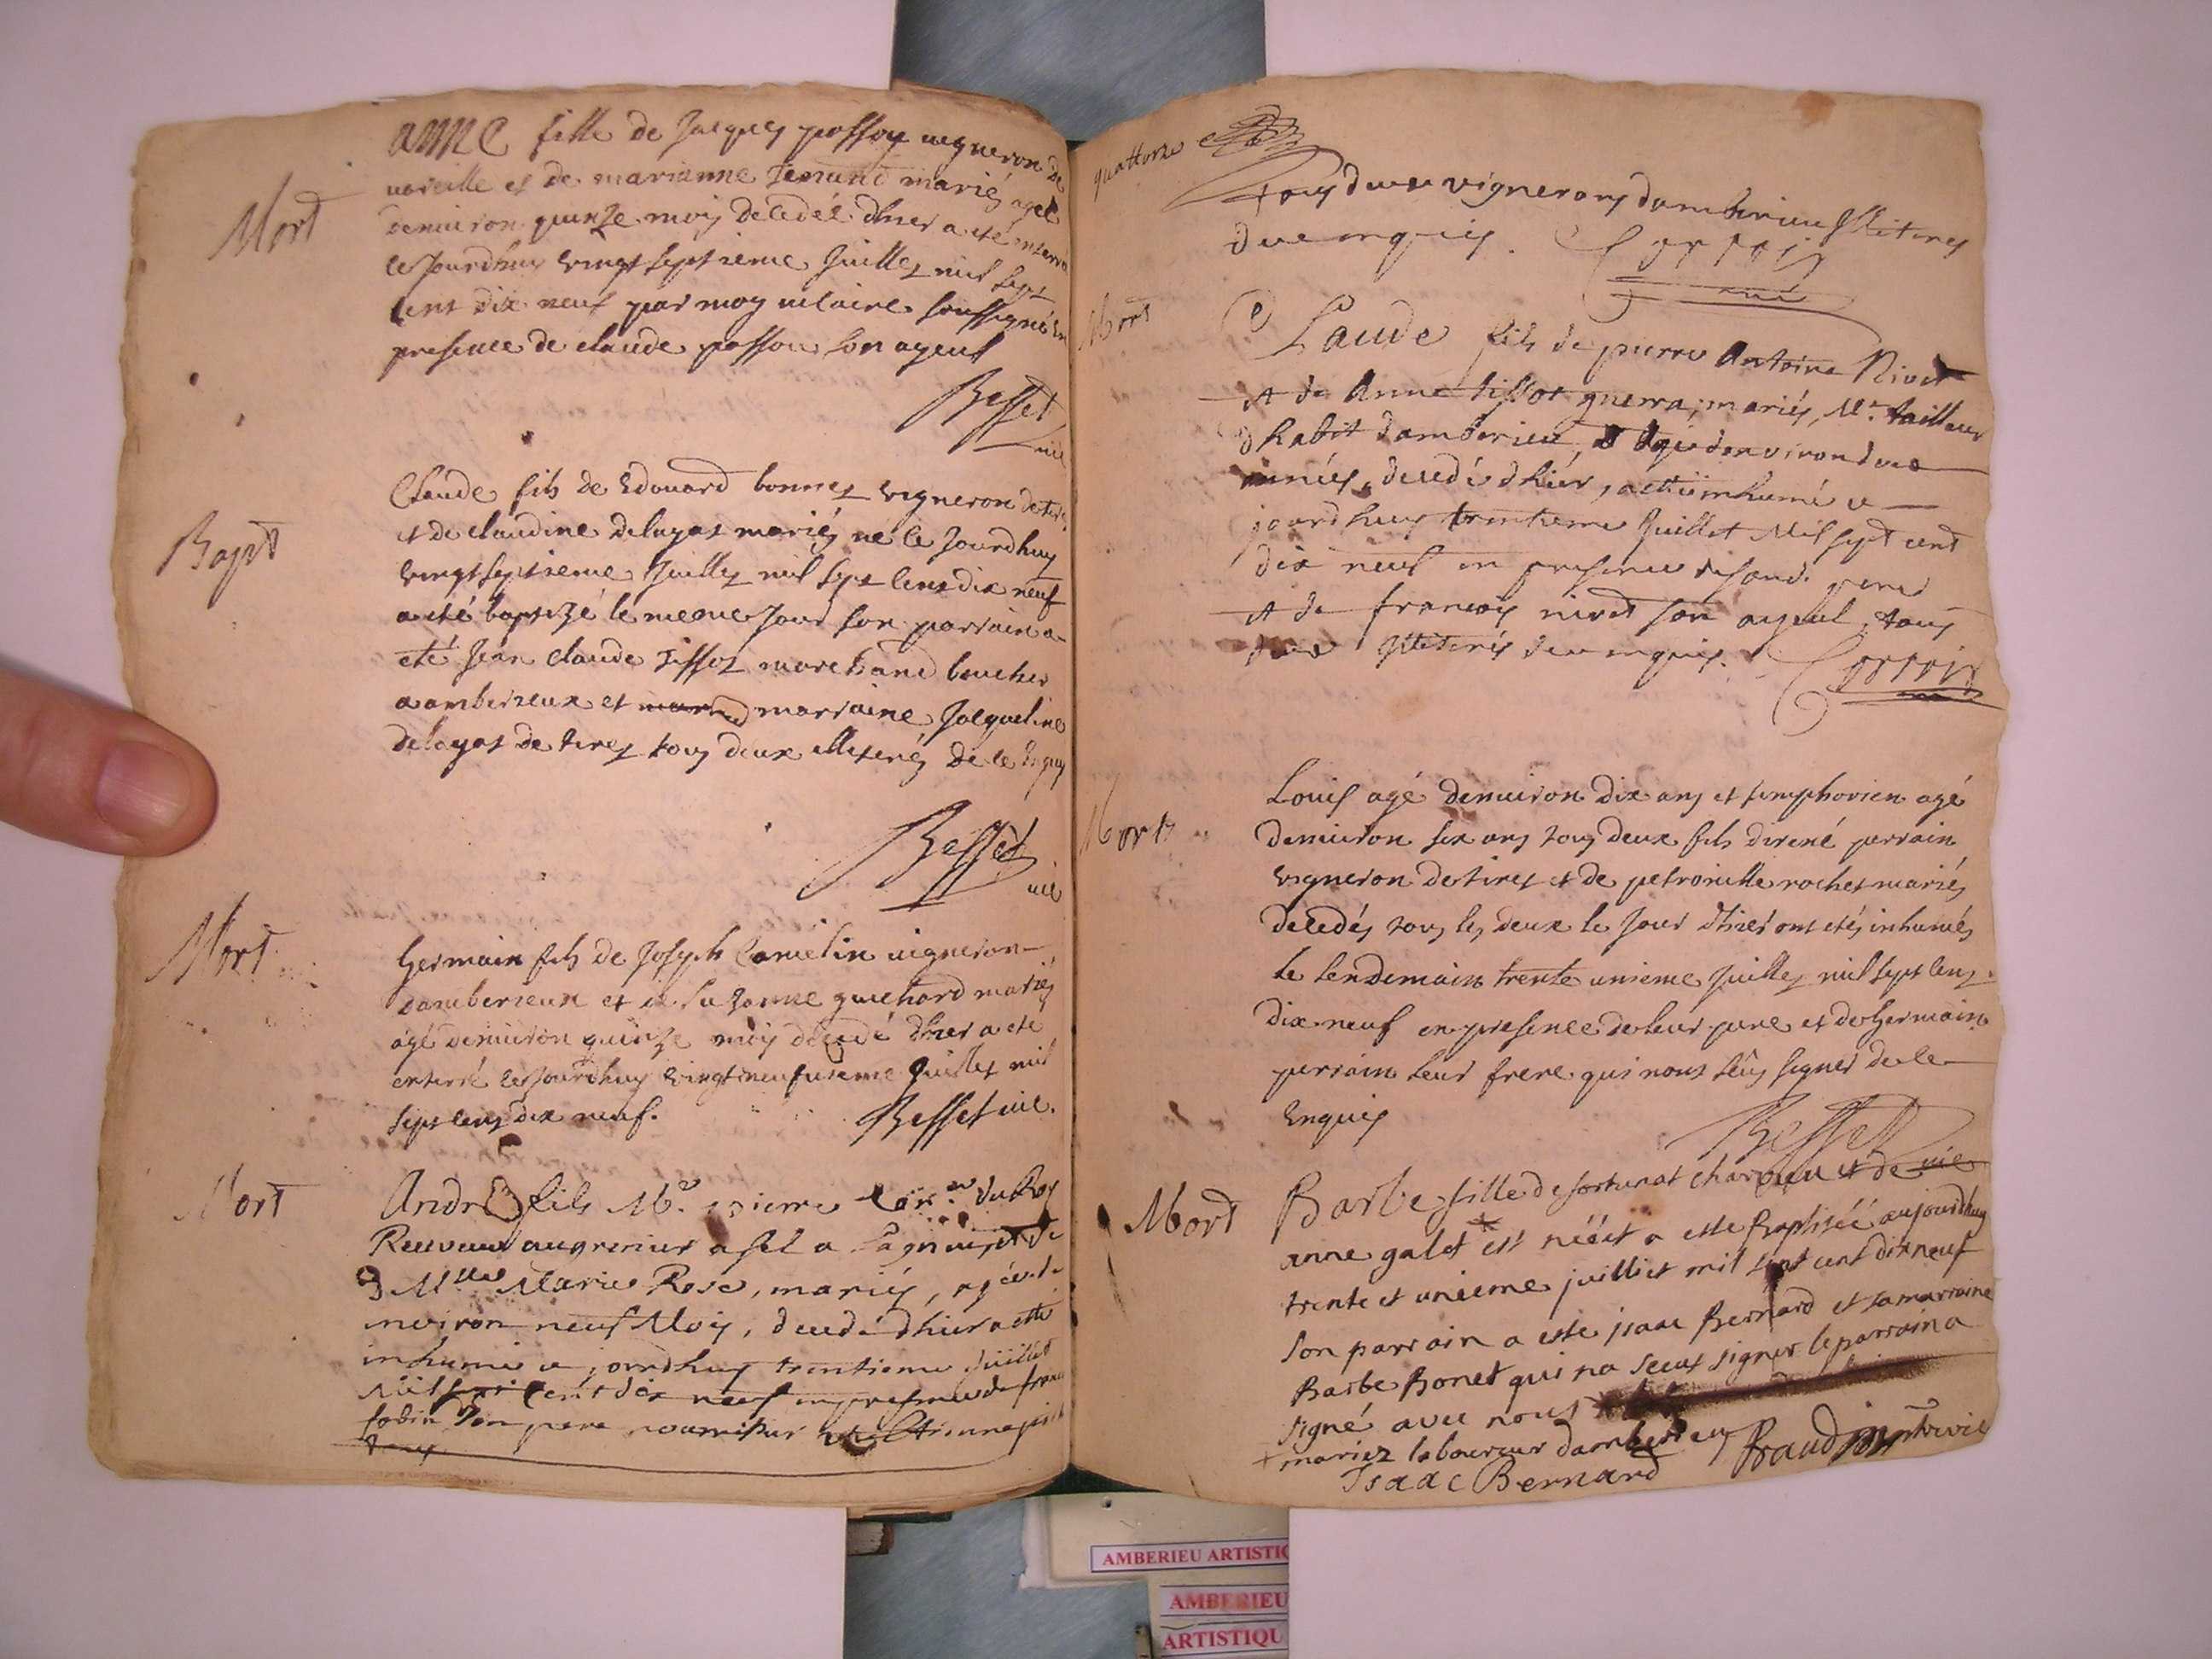 Mort
anne fille de Jacques possoy vigneron de
vareille et de marianne marié agee
denuiron quinze mois decedée d'hier a eté enterré
ce Jourdhuy vingt septieme Juillet mil sept
cent dix neuf par moy vicaire soussigné en
presence de claude possou son ayeul
Besset
vic
Bapt
Claude fils de Edouard bonnet vigneron de tirey
et de claudine delagas mariés né ce Jourdhuy
vingt septieme Juillet mil sept cent dix neuf
a eté baptizé le meme Jour son parrain a
eté Jean claude tissot marchand boucher
a amberieux et marraine Jacqueline
delagas de tirey tous deux illiterés de ce Enquis
Besset
vic
Mort
Germain fils de Joseph Camelin vigneron
damberieux et de Suzanne guichard mariés
agé denuiron quinze mois decedé d'hier a eté
enterré ce Jourdhuy vingtneufuieme Juillet mil
sept cent dix neuf. Besset vic.
Mort
André fils Mr. pierre du Roy
Receveur au grenier a sel a Lagnieu et de
Mlle Marie Rose, mariés, agé de
nviron neuf Mois, decedé dhier a esté
inhumé ce jourdhuy trentieme Juillet
Mil sept cent dix neuf en presence de
son pere nourricier
tous
quattorze
tous deux vignerons damberieu Illiterés
de ce enquis. Corroir
curé
Mort
Claude fils de pierre Antoine Nivet
et de Anne tissot guerra, mariés, Mr. tailleur
dhabit damberieu, agé denviron deux
années, decedé dhier, a esté inhumé ce
jourdhuy trentieme Juillet Mil sept cent
dix neuf en presence de son d. pere
et de francois nivet son ayeul, tous
deux Illiterés de ce enquis. Corroir
Morts
Louis agé denuiron dix ans et simphorien agé
denuiron six ans tous deux fils d'irené perrain
vigneron de tirey et de petronille rochet mariés
decedés tous les deux le Jour d'hier ont etés inhumés
le lendemain trente unieme Juillet mil sept cent
dix neuf en presence de leur pere et de Germain
perrain leur frere qui n'ont sçus signer de ce
Enquis
Besset
vic
Mort
Barbe fille de fortunat charveu et de
anne galet + est néé et a esté Baptiséé aujourdhuy
trente et unieme juilliet mil sept cent dix neuf
son parrain a esté jsaac Bernard et sa marraine
Barbe Bonet qui na sceut signer le parrain a
signé avec nous
+ mariez laboureur damberieu Braud vic
Isaac Bernard
AMBERIEU ARTISTIQ
AMBERIEU
ARTISTIQU